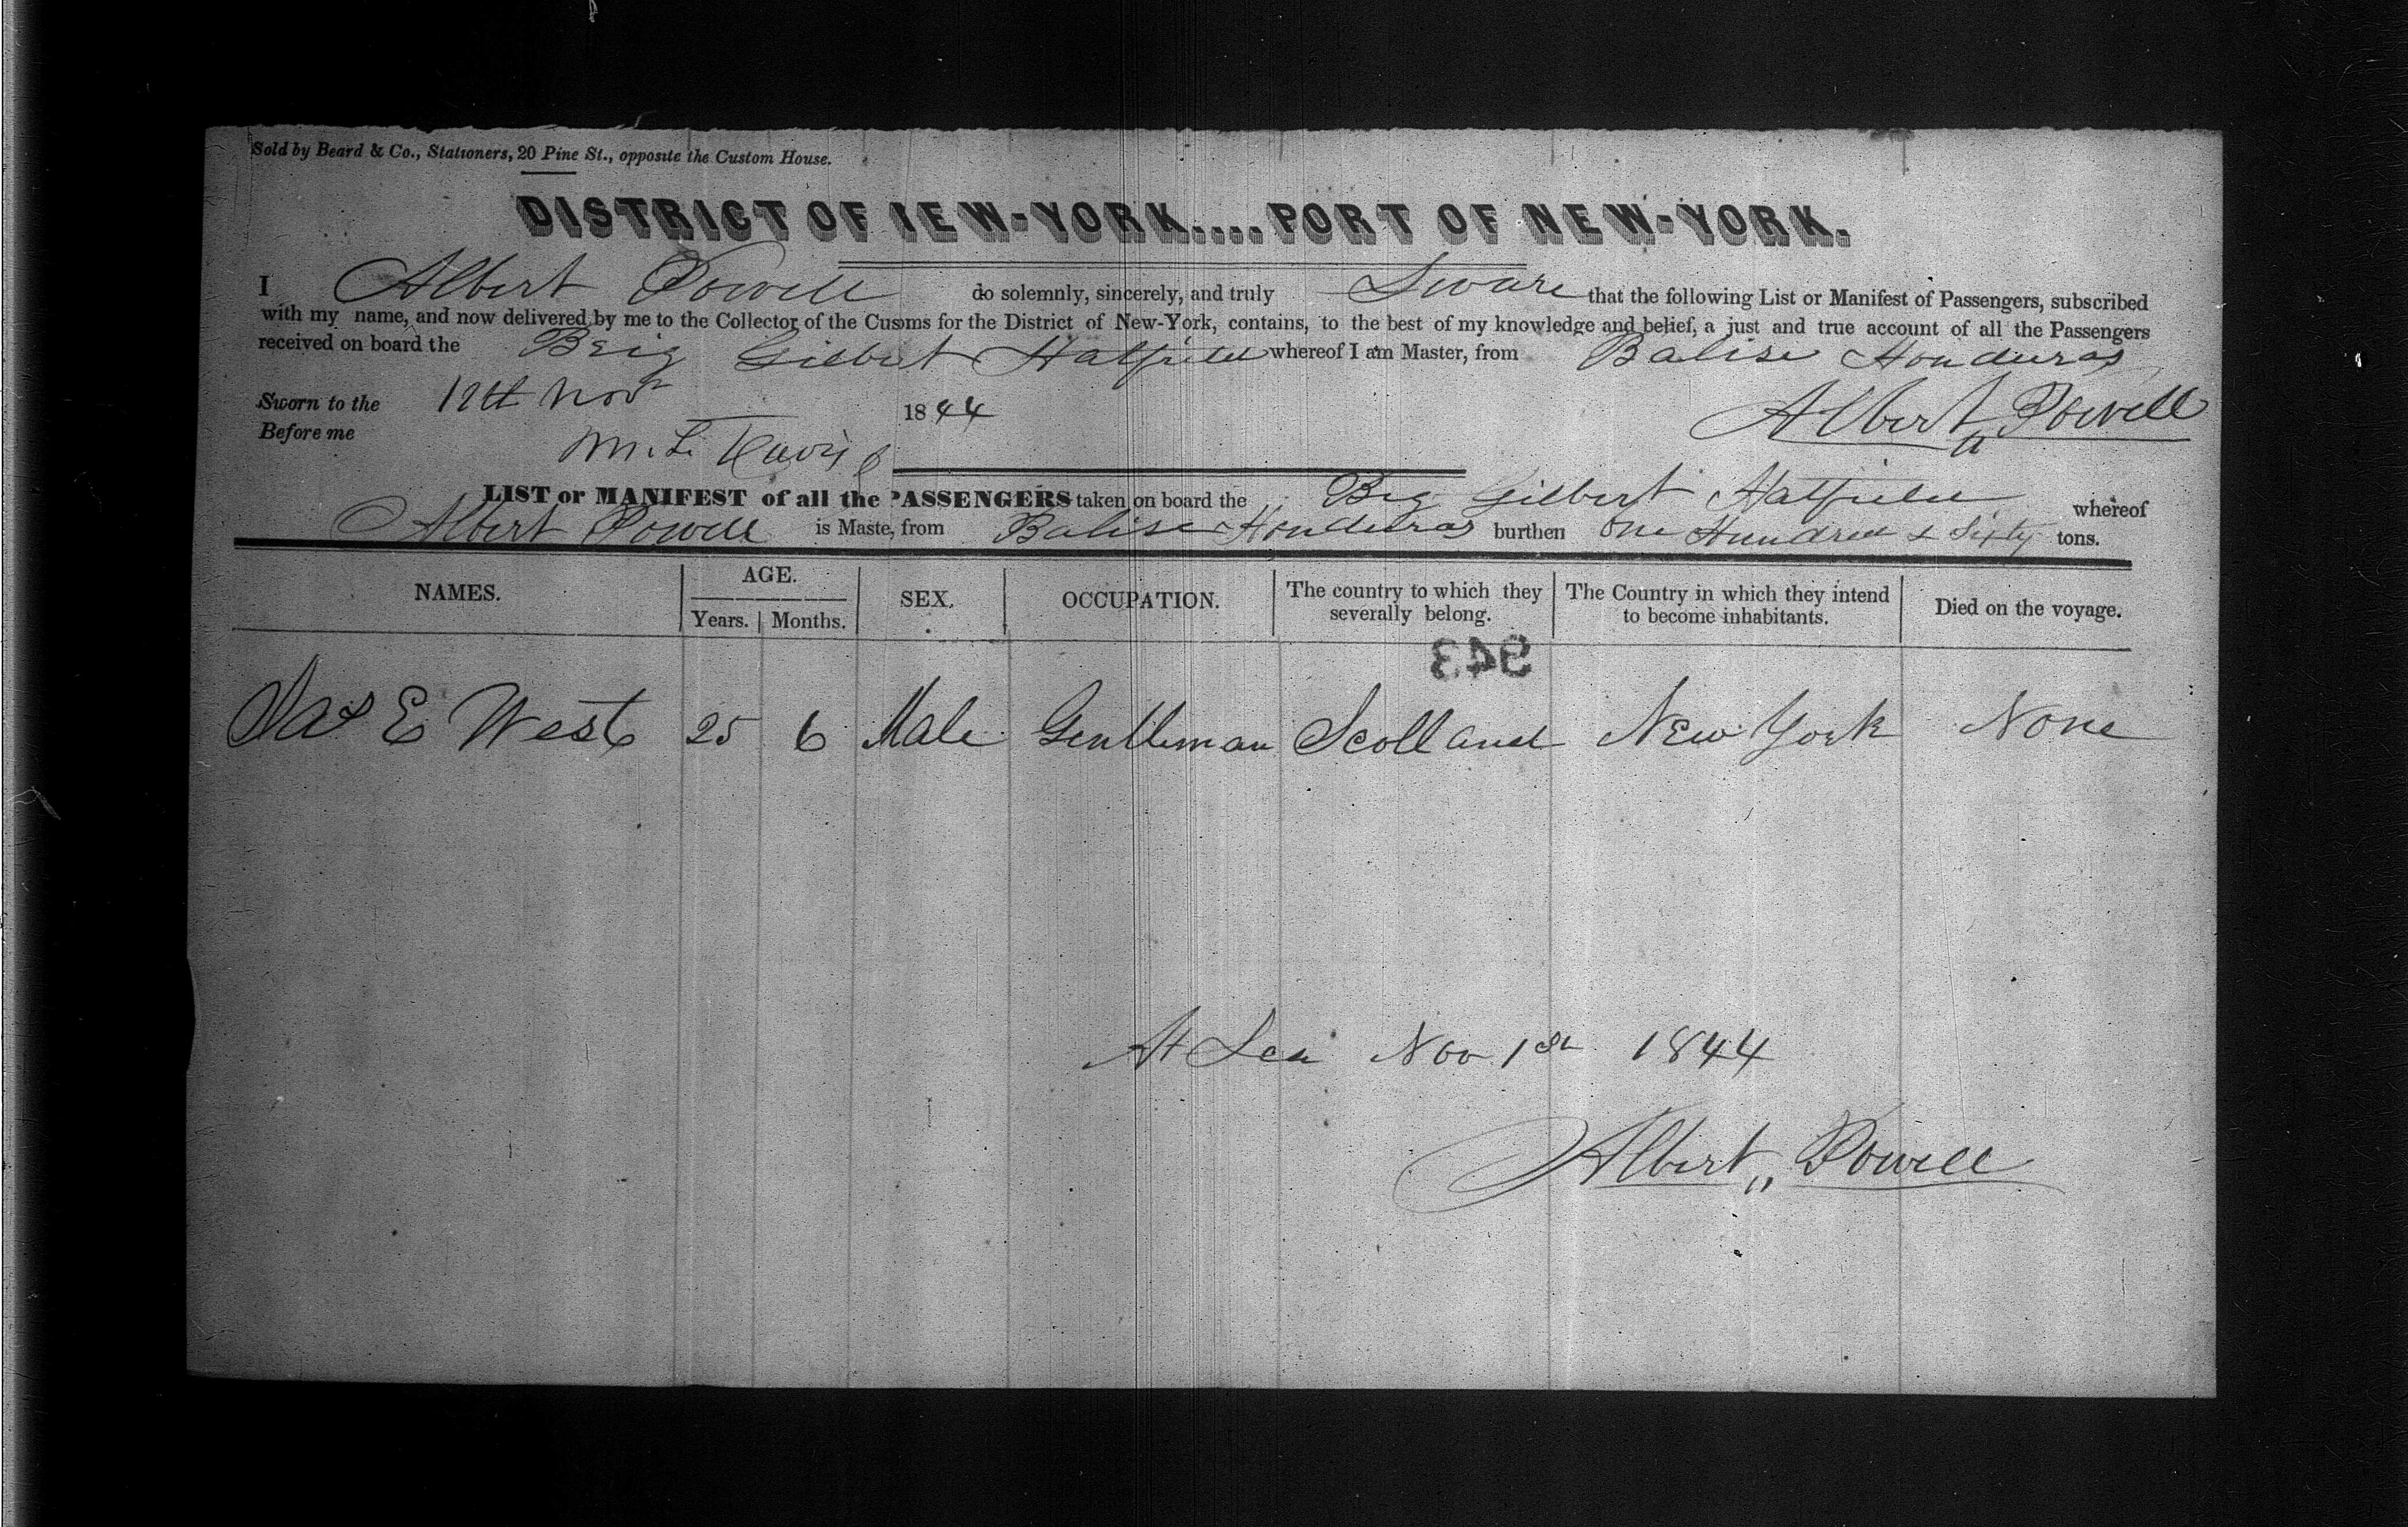 Sold by Beard & Co., Stationers, 20 Pine St., opposite the Custom House.
DISTRICT OF IEW-YORK....PORT OF NEW-YORK.
I Albert Powell do solemnly, sincerely, and truly Sware that the following List or Manifest of Passengers, subscribed
with my name, and now delivered by me to the Collector of the Cusoms for the District of New-York, contains, to the best of my knowledge and belief, a just and true account of all the Passengers
received on board the Brig Gilbert Hatfield whereof I am Master, from Balise Honduras
Sworn to the 12th Nov 1844
Albert Powell
Before me M. L. Davis
LIST or MANIFEST of all the PASSENGERS taken on board the Brig Gilbert Hatfield whereof
Albert Powell is Maste, from Balise Honduras burthen One Hundred & Sixty tons.
NAMES. AGE. SEX. OCCUPATION. The country to which they severally belong. The Country in which they intend to become inhabitants. Died on the voyage.
Years. Months.
943
Jas E West 25 6 Male Gentleman Scotland New York None
At Sea Nov 1st 1844
Albert Powell